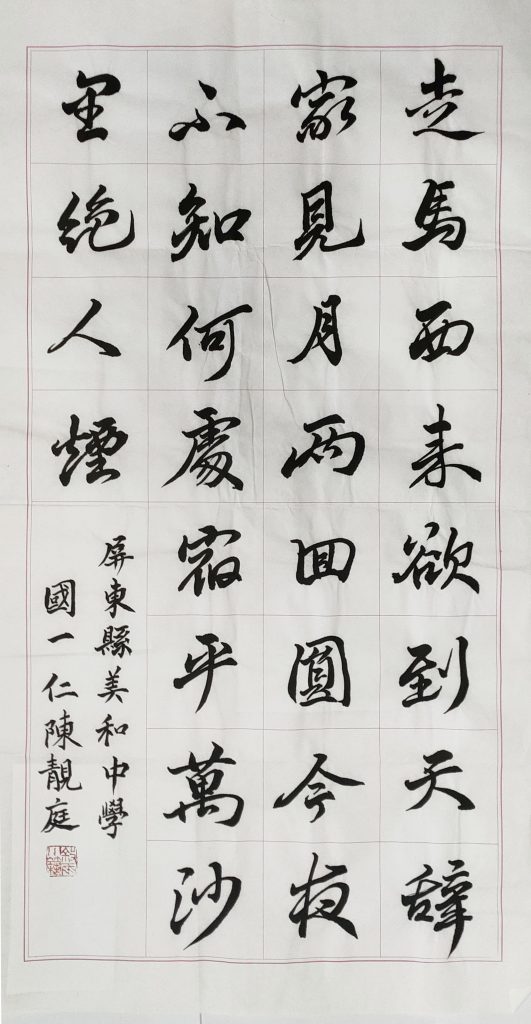 走馬西来欲到天辭
家見月兩回圓今夜
不知何處宿平萬沙
里絶人煙
屏東縣美和中學
國一仁陳靚庭